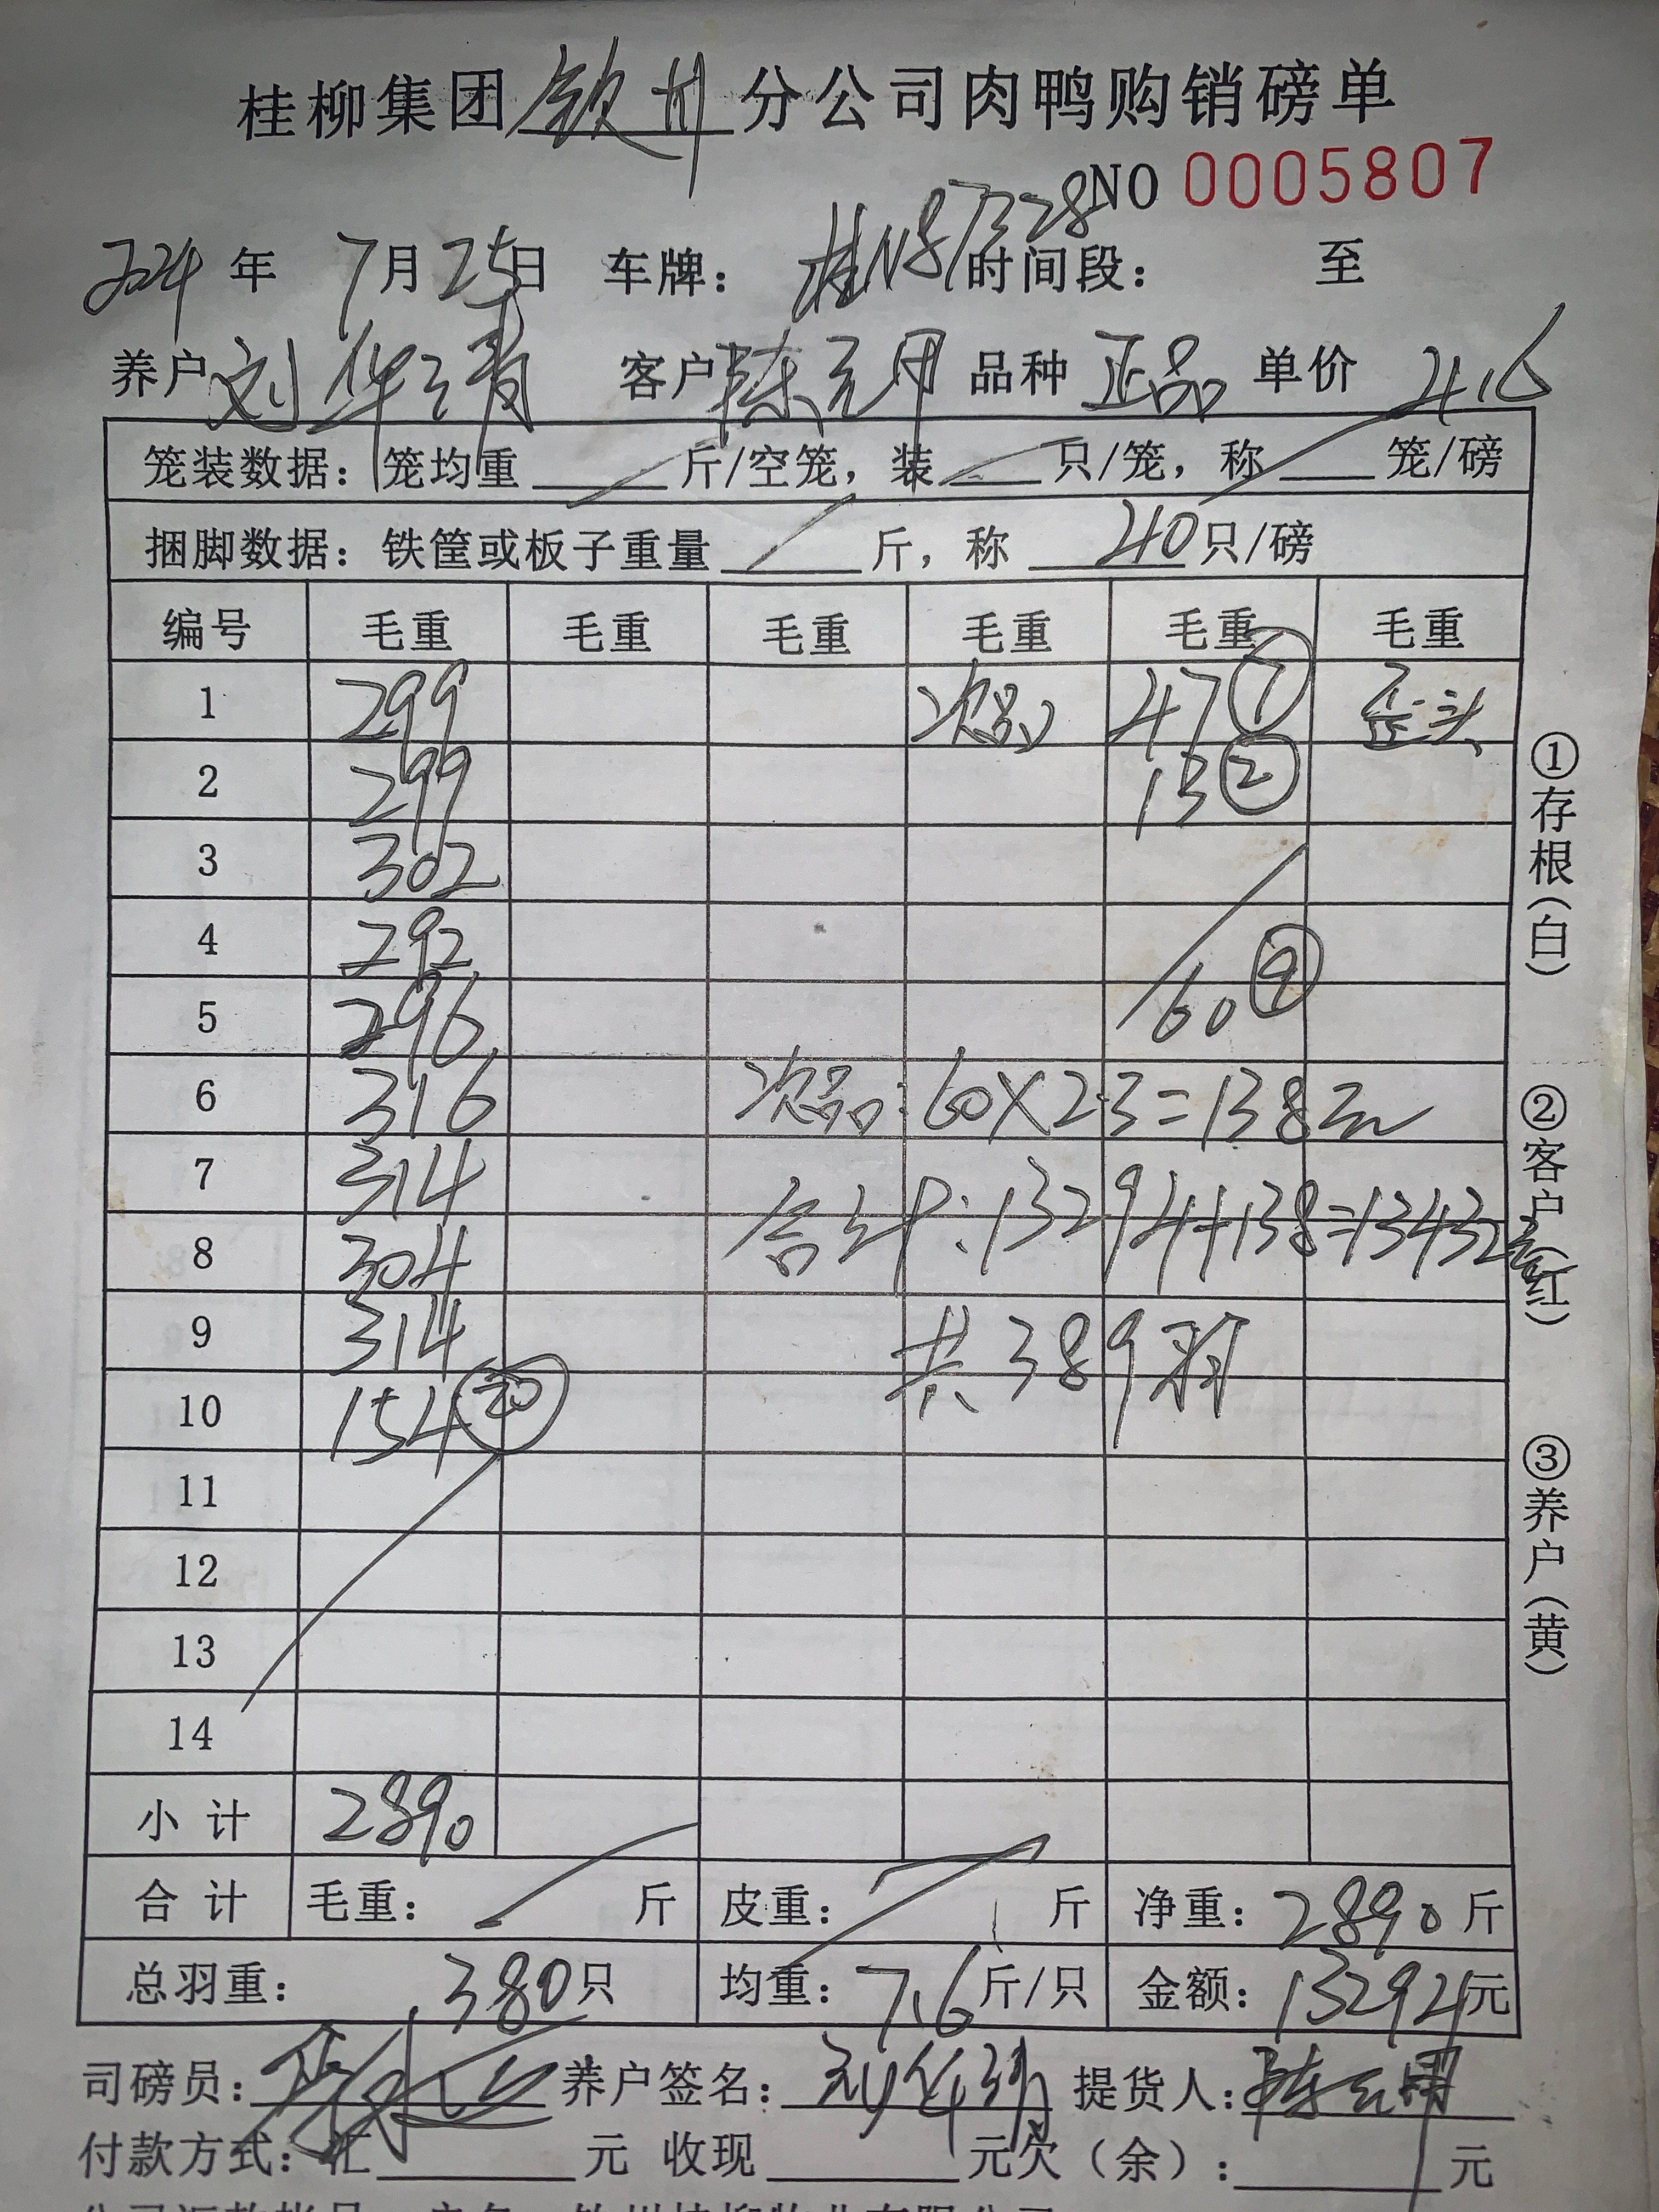 桂柳集团钦州分公司肉鸭购销磅单
NO 0005807
2024年 7月25日 车牌：桂N87328 时间段： 至
养户 刘华清 客户 陈元甲 品种 正品 单价 4.6
笼装数据：笼均重 斤/空笼，装 只/笼，称 笼/磅
捆脚数据：铁筐或板子重量 斤，称 40只/磅
编号 毛重 毛重 毛重 毛重 毛重 毛重
1 299 次品 47⑦ 歪头
2 299 13②
3 302
4 292
5 296 60⑨
6 316 次品：60×2.3=138元
7 314
8 304 合计：13294+138=13432元
9 314 共389羽
10 154⑳
11
12
13
14
小计 2890
合计 毛重： 斤 皮重： 斤 净重：2890斤
总羽重：380只 均重：7.6斤/只 金额：13294元
司磅员： 养户签名：刘华清 提货人：陈元甲
付款方式：汇 元 收现 元欠（余）： 元
①存根（白）
②客户（红）
③养户（黄）